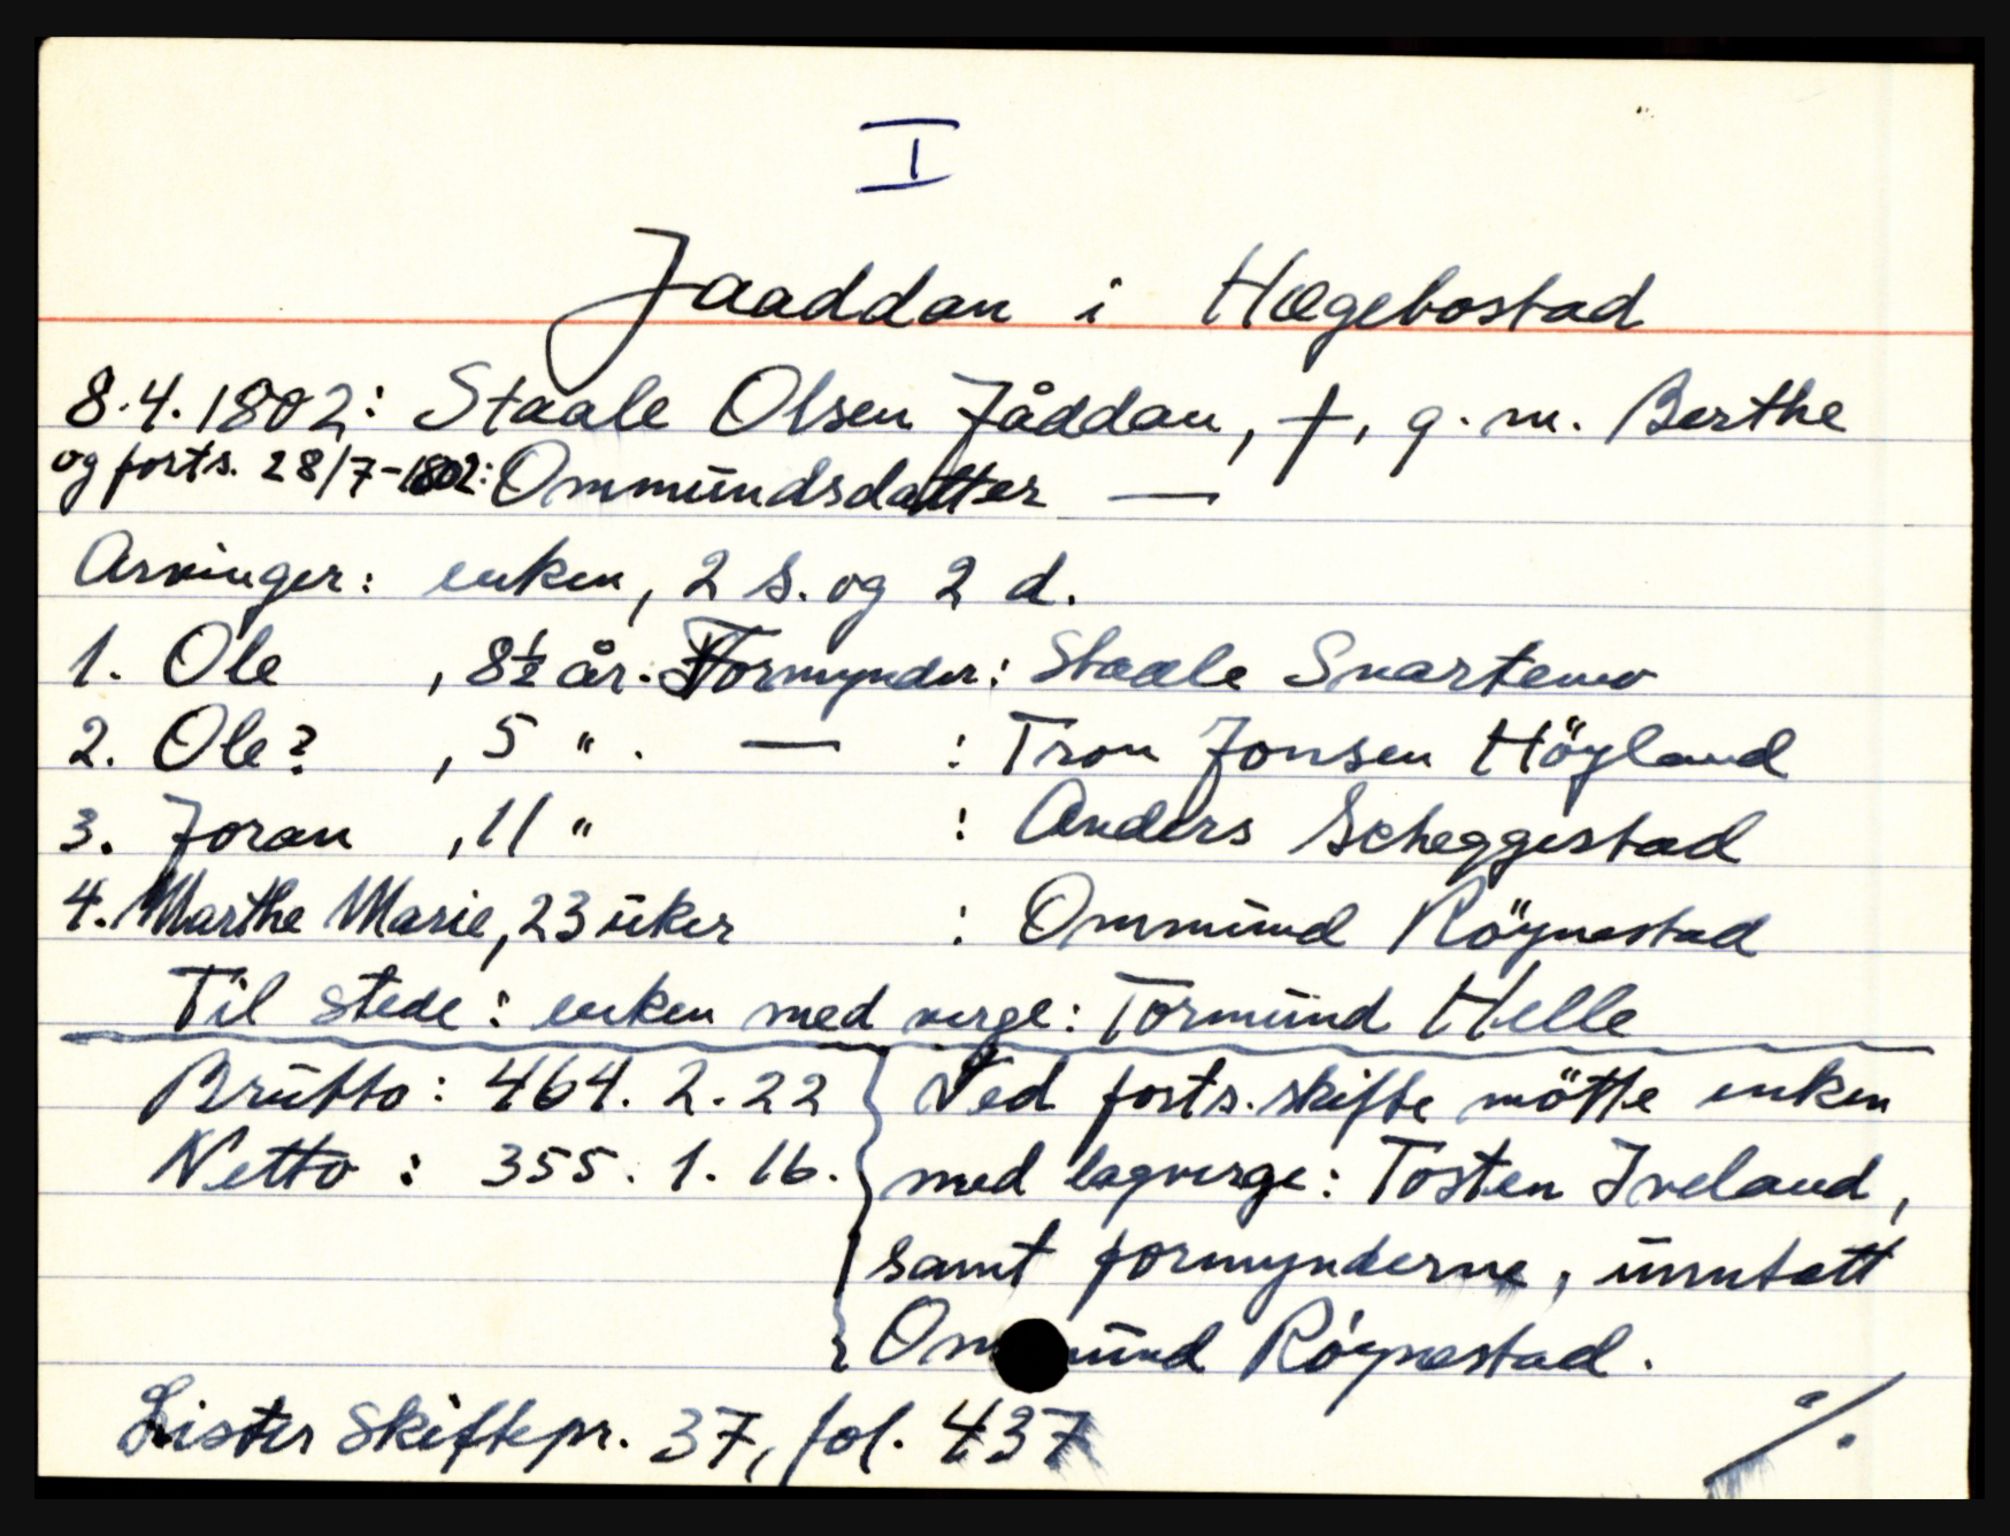 I
Jaaddan i Hægebostad
8.4.1802: Staale Olsen Jåddan, †, g.m. Berthe
og forts. 28/7-1802: Ommundsdatter —
Arvinger: enken, 2 s. og 2 d.
1. Ole , 8½ år. Formynder: Staale Snartemo
2. Ole? , 5 " . — : Tron Jonsen Höyland
3. Joran , 11 " : Anders Scheggestad
4. Marthe Marie, 23 uker : Ommund Röynestad
Til stede: enken med verge: Tormund Helle
Brutto: 464. 2. 22 Ved forts. skifte mötte enken
Netto : 355. 1. 16. med lagverge: Tosten Iveland,
samt formynderne, unntatt
Ommund Röynestad.
Lister Skiftepr. 37, fol. 437
./.